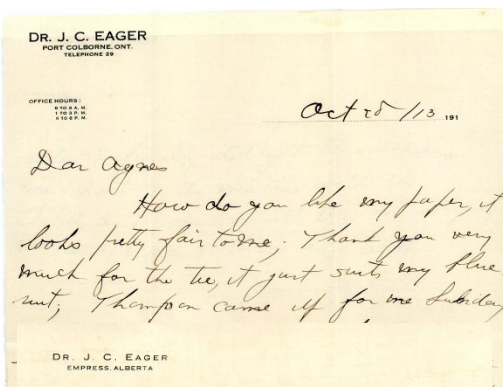 DR. J. C. EAGER
PORT COLBORNE, ONT.
TELEPHONE 29
OFFICE HOURS:
8 TO 9 A. M.
1 TO 3 P. M.
6 TO 8 P. M.
Oct 28/13 191
Dear Agnes
How do you like my paper, it
looks pretty fair to me; Thank you very
much for the tie, it just suits my blue
suit; Thompson came up for me Sunday
DR. J. C. EAGER
EMPRESS, ALBERTA